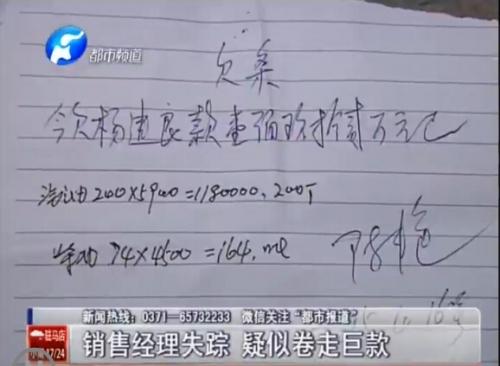 都市频道
欠条
今欠杨建良款壹佰玖拾贰万元正
汽油 200×5900=1180000、200T
74×4500=
16号
新闻热线：0371-65732233 微信关注“都市报道”
驻马店
17/24
销售经理失踪 疑似卷走巨款